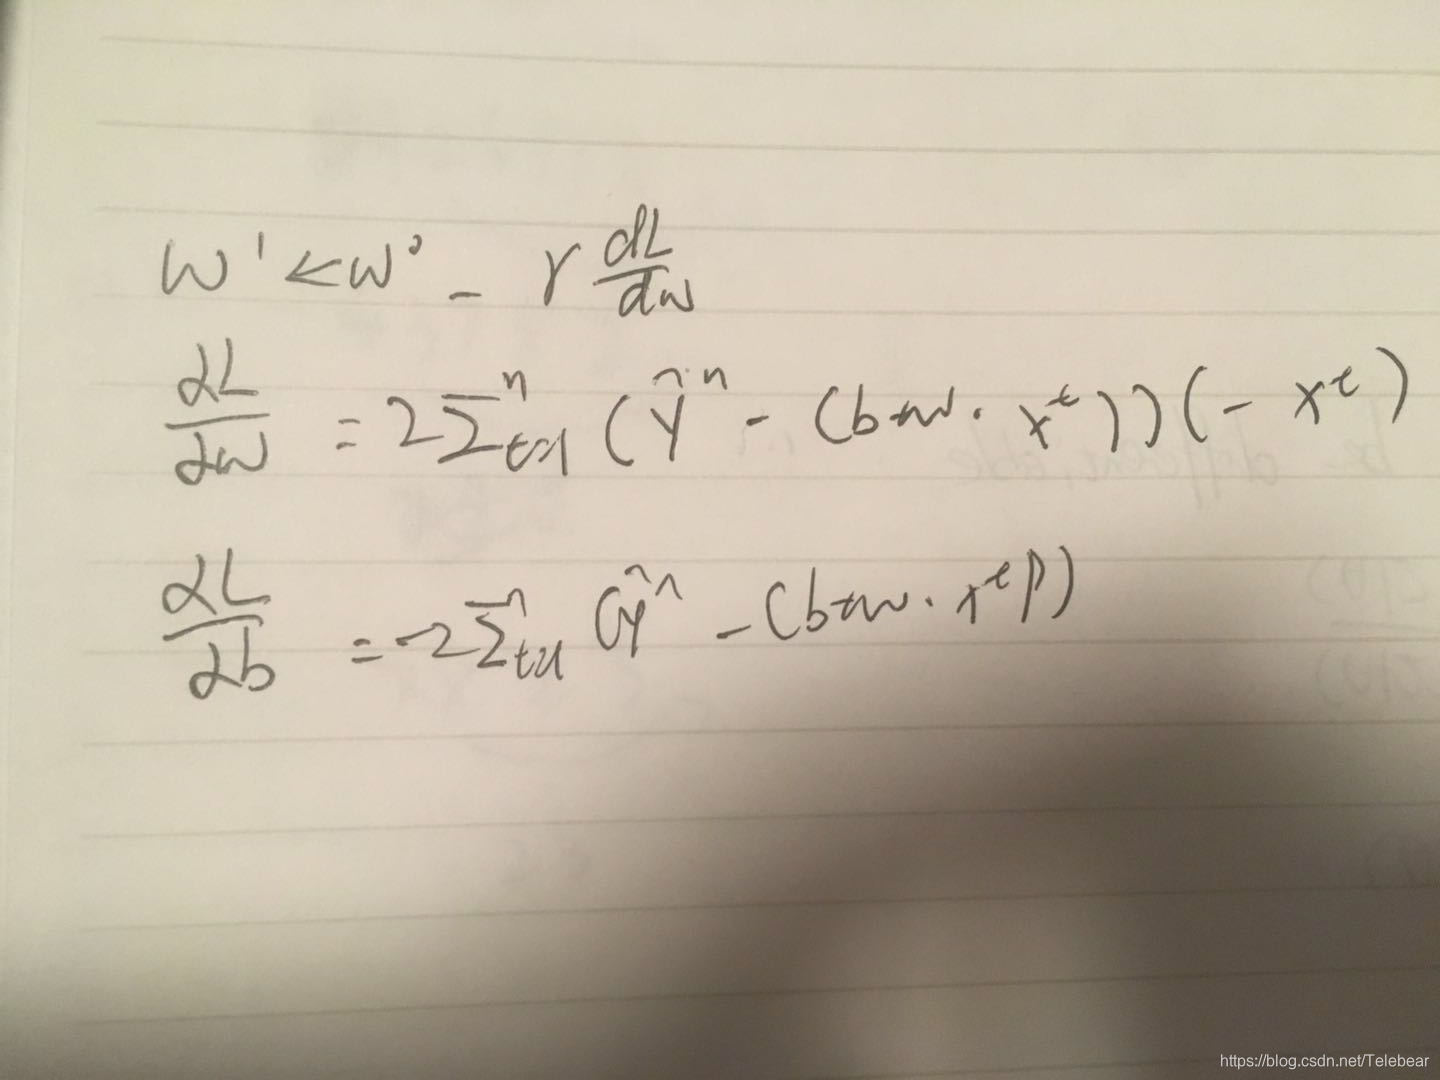 w¹ ← w⁰ - r dL/dw
∂L/∂w = 2Σⁿₜ₌₁ (ŷⁿ - (b+w·xᵗ))(-xᵗ)
∂L/∂b = -2Σⁿₜ₌₁ (ŷⁿ - (b+w·xᵗ))
https://blog.csdn.net/Telebear